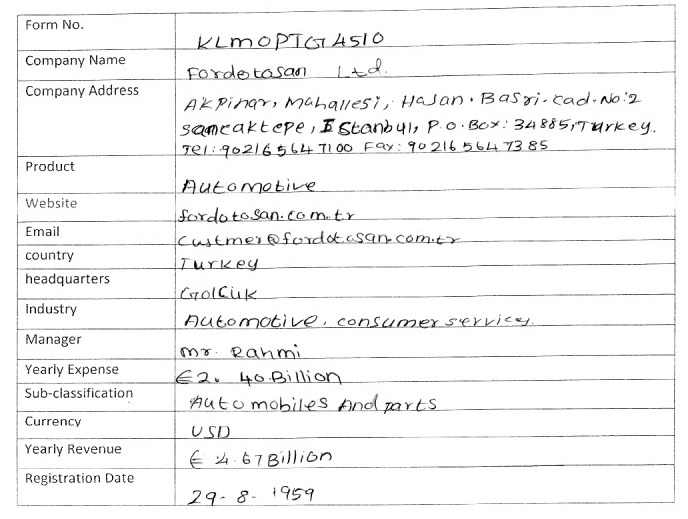 Form No. KLMOPTG4510
Company Name Fordotosan Ltd.
Company Address
Akpinar, Mahallesi, Hasan. Basri. cad. No:2
Sancaktepe, Istanbul, P.O. Box: 34885, Turkey.
Tel: 90216 564 7100 Fax: 90 216 564 73 85
Product Automotive
Website fordotosan.com.tr
Email Custmer@fordotosan.com.tr
country Turkey
headquarters Golcuk
Industry Automotive, consumer services.
Manager Mr. Rahmi
Yearly Expense €2. 40 Billion
Sub-classification Automobiles And parts
Currency USD
Yearly Revenue € 4.67 Billion
Registration Date 29-8-1959